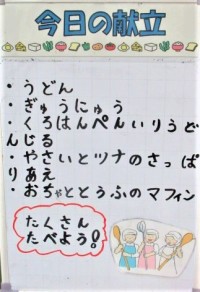 今日の献立
・うどん
・ぎゅうにゅう
・くろはんぺんいりうど
んじる
・やさいとツナのさっぱ
りあえ
・おちゃととうふのマフィン
たくさん
たべよう!